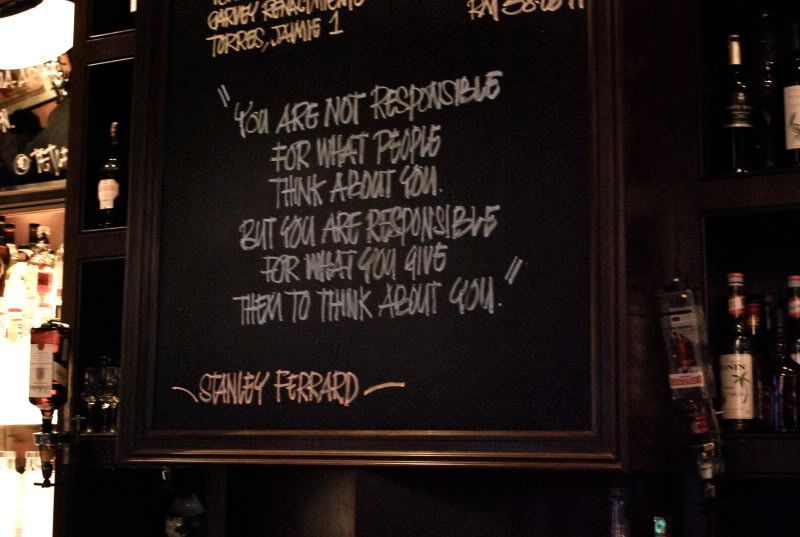 GARVEY RENACIMIENTO
TORRES, JAMIE 1
"YOU ARE NOT RESPONSIBLE
FOR WHAT PEOPLE
THINK ABOUT YOU.
BUT YOU ARE RESPONSIBLE
FOR WHAT YOU GIVE
THEM TO THINK ABOUT YOU."
STANLEY FERRARD